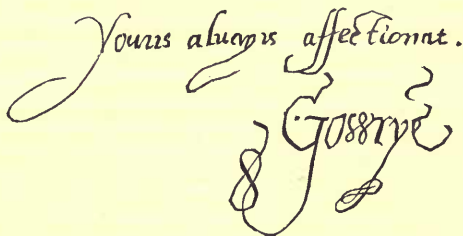 Yours alwayis affectionat.
Gowrye